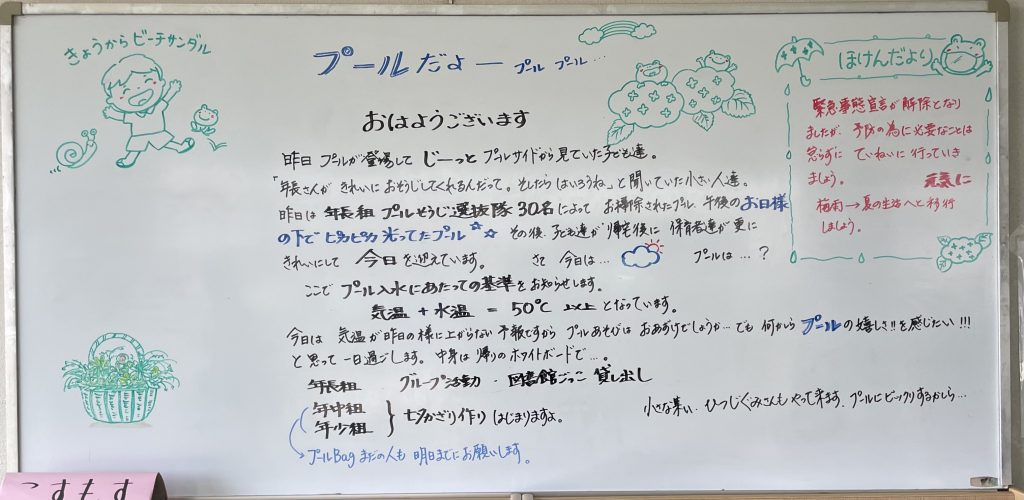 きょうからビーチサンダル
プールだよー プール プール…
おはようございます
昨日 プールが登場して じーっと プールサイドから見ていた子ども達。
「年長さんが きれいに おそうじしてくれるんだって。そしたら はいろうね」と聞いていた小さい人達。
昨日は 年長組 プールそうじ選抜隊 30名によって お掃除されたプール、午後のお日様
の下でピカピカ光ってたプール☆☆ その後、子ども達が 帰宅後に 保育者達が更に
きれいにして 今日を迎えています。 さて 今日は… プールは…?
ここで プール入水にあたっての基準をお知らせします。
気温 + 水温 = 50℃ 以上 となっています。
今日は 気温が昨日の様に上がらない予報ですから プールあそびは おあずけでしょうか…でも 何かしら プールの嬉しさ!!を感じたい!!!
と思って一日過ごします。中身は 帰りのホワイトボードで…。
年長組 グループ活動・図書館ごっこ 貸し出し
年中組
年少組 } 七夕かざり作り はじまりますよ。
プールBag まだの人も 明日までにお願いします。
小さな集い、ひつじぐみさんも やって来ます。プールにビックリするかしら…
ほけんだより
緊急事態宣言が解除となり
ましたが、予防の為に必要なことは
怠らずに ていねいに 行っていき
ましょう。 元気に
梅雨→夏の生活へと移行
しましょう。
こすもす